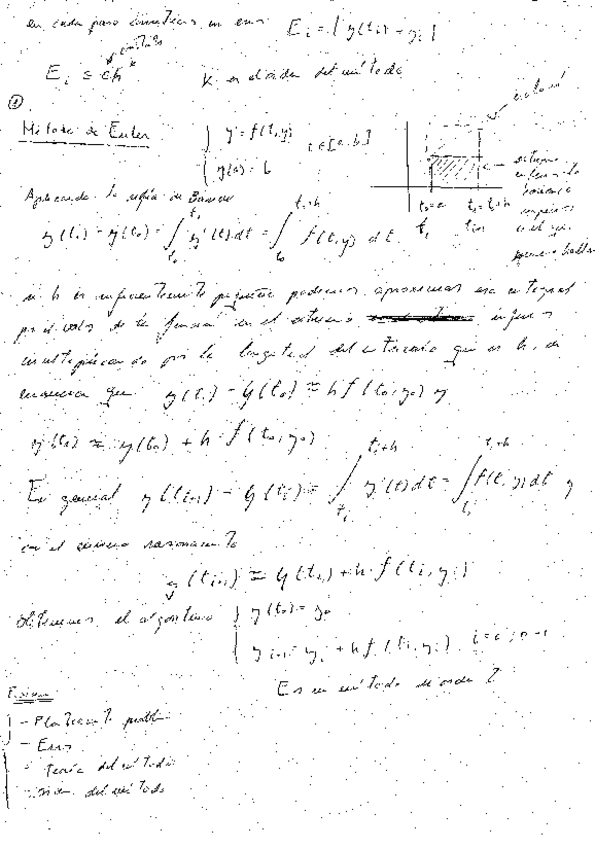 en cada paso cometemos un error E_i = |y(t_i) - y_i|
E_i ≤ ch^k K es el orden del método
①
Método de Euler { y' = f(t,y) t∈[a,b]
y(a) = b
Aplicando la regla de Barrow
y(t_1) - y(t_0) = ∫_{t_0}^{t_1} y'(t) dt = ∫_{t_0}^{t_1+h} f(t,y) dt
t_0 = a t_1 = t_0+h
si h es suficientemente pequeño podemos aproximar esa integral
por el valor de la función en el extremo inferior
multiplicando por la longitud del intervalo que es h, de
manera que y(t_1) - y(t_0) ≈ h f(t_0, y_0) y
y(t_1) ≈ y(t_0) + h · f(t_0, y_0)
En general y(t_{i+1}) - y(t_i) = ∫_{t_i}^{t_i+h} y'(t) dt = ∫_{t_i}^{t_i+h} f(t,y) dt y
con el mismo razonamiento
y(t_{i+1}) ≈ y(t_i) + h · f(t_i, y_i)
obtenemos el algoritmo { y(t_0) = y_0
y_{i+1} = y_i + h f(t_i, y_i)
Es un método de orden 1
- Planteamiento
- Error
- Teoría del método
- orden del método